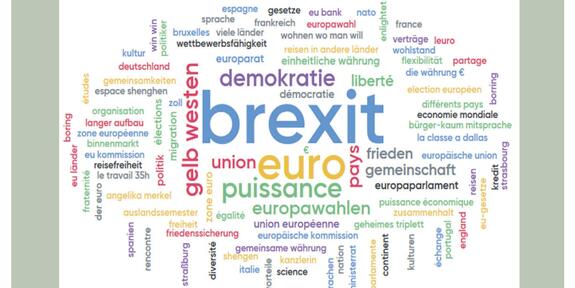 espagne gesetze eu bank nato
sprache frankreich europawahl enlightet france
win win politiker bruxelles viele länder wohnen wo man will verträge leuro
wettbewerbsfähigkeit reisen in andere länder wohlstand
kultur europarat einheitliche währung flexibilität partage
deutschland demokratie liberté die währung €
études gemeinsamkeiten election européen
espace shenghen démocratie différents pays borring
organisation zoll gelb westen brexit economie mondiale
boring langer aufbau élections migration bürger-kaum mitsprache
zone européenne la classe a dallas
binnenmarkt € pays frieden
eu länder eu kommission politik union euro europäische union strasbourg
reisefreiheit gemeinschaft kredit
le travail 35h puissance europaparlament reisen
fraternité der euro angelika merkel zone euro puissance économique eu-gesetze
auslandssemester égalité europawahlen zusammenhalt
freiheit union européenne geheimes triplett england
spanien rencontre friedenssicherung europäische kommission portugal
straßburg diversité gemeinsame währung nation continent kulturen échange
shengen kanzlerin
italie science